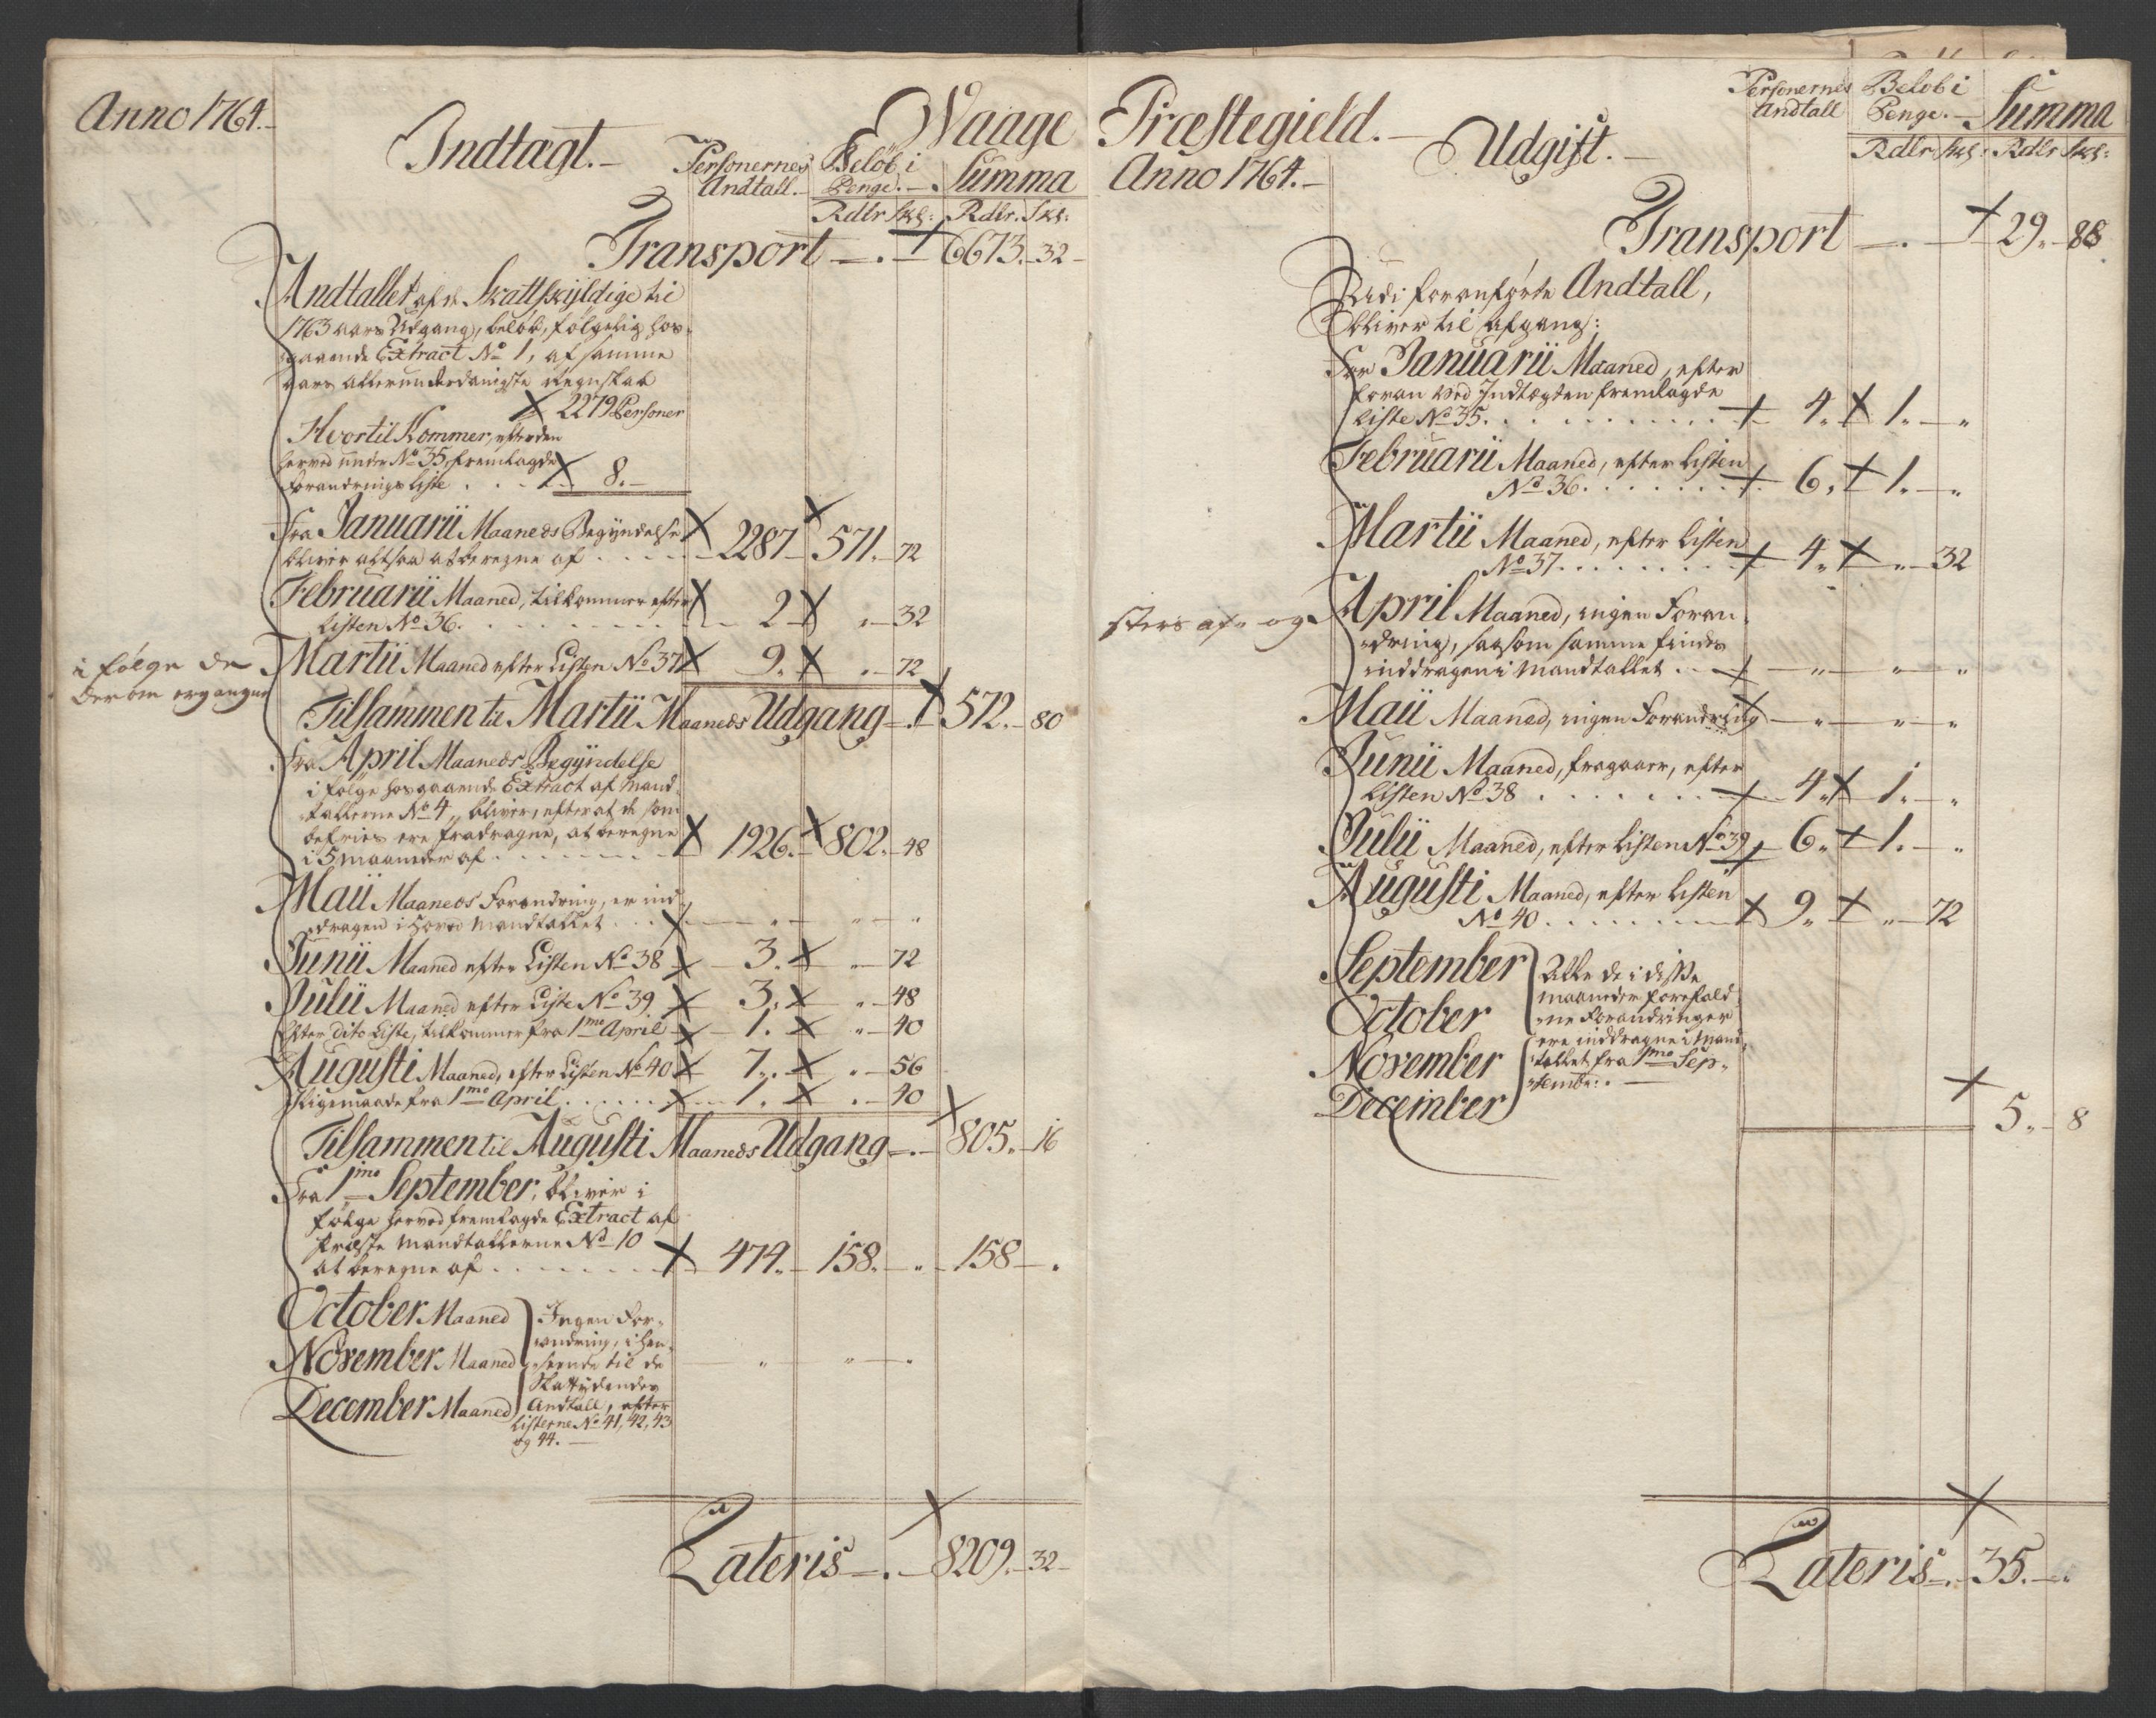 Anno 1764.
Waage
Indtægt.
Personernes Andtall.
Beløb i Penge.
Summa
Rdlr Skl: Rdlr. Skl:
Transport 6673. 32
Andtallet af de Skattskyldige til
1763 aars Udgang, beløb, følgelig hos-
gaaende Extract No 1, af samme
aars allerunderdanigste Regnskab
2279 Personer
Hvortil Kommer, efter den
herved under No 35 fremlagde
forandrings Liste 8.
Fra Januarii Maaneds Begyndelse
bliver altsaa at beregne af 2287 571. 72
Februarii Maaned, tilkommer efter
Listen No 36. 2 " 32
i følge de
derom ergangne
Martii Maaned efter Listen No 37 9. " 72
Tilsammen til Martii Maaneds Udgang 572. 80
Fra April Maaneds Begyndelse
i følge hosgaaende Extract af Mand-
tallerne No 4, bliver, efter at de som
befries ere fradragne, at beregne
i 5 maaneder af 1926. 802. 48
Maii Maaneds Forandring, er ind-
dragen i Hoved Mandtallet " " "
Junii Maaned efter Listen No 38 3. " 72
Julii Maaned efter Liste No 39 3. " 48
Efter Dito Liste, tilkommer fra 1mo April 1. " 40
Augusti Maaned, efter Listen No 40 7. " 56
Ligemaade fra 1mo April 1. " 40
Tilsammen til Augusti Maaneds Udgang 805. 16
Fra 1mo September, bliver i
følge herved fremlagde Extract af
Præste Mandtallerne No 10
at beregne af 474. 158. " 158 "
October Maaned
November Maaned
December Maaned
Ingen For-
andring, i hen-
seende til de
Skattydendes
Andtall, efter
Listerne No 41, 42, 43
og 44.
" " "
Lateris 8209. 32
Præstegield.
Anno 1764.
Udgift.
Personernes Andtall
Beløb i Penge.
Summa
Rdlr Skl: Rdlr Skl:
Transport 29. 88
Udi foranførte Andtall,
bliver til afgang:
For Januarii Maaned, efter
foran ved Indtægten fremlagde
Liste No 35. 4. 1. "
Februarii Maaned, efter Listen
No 36. 6. 1. "
Martii Maaned, efter Listen
No 37. 4. " 32
April Maaned, ingen Foran-
dring, saasom samme findes
inddragen i Mandtallet " " "
Maii Maaned, ingen Forandring " " "
Junii Maaned, fragaaer, efter
Listen No 38 4. 1. "
Julii Maaned, efter Listen No 39 6. 1. "
Augusti Maaned, efter Listen
No 40 9. " 72
September
October
November
December
Alle de i disse
maaneder forefald-
ne Forandringer
ere inddragne i Mand-
tallet fra 1mo Sep-
tembr:
5. 8
Lateris 35. "